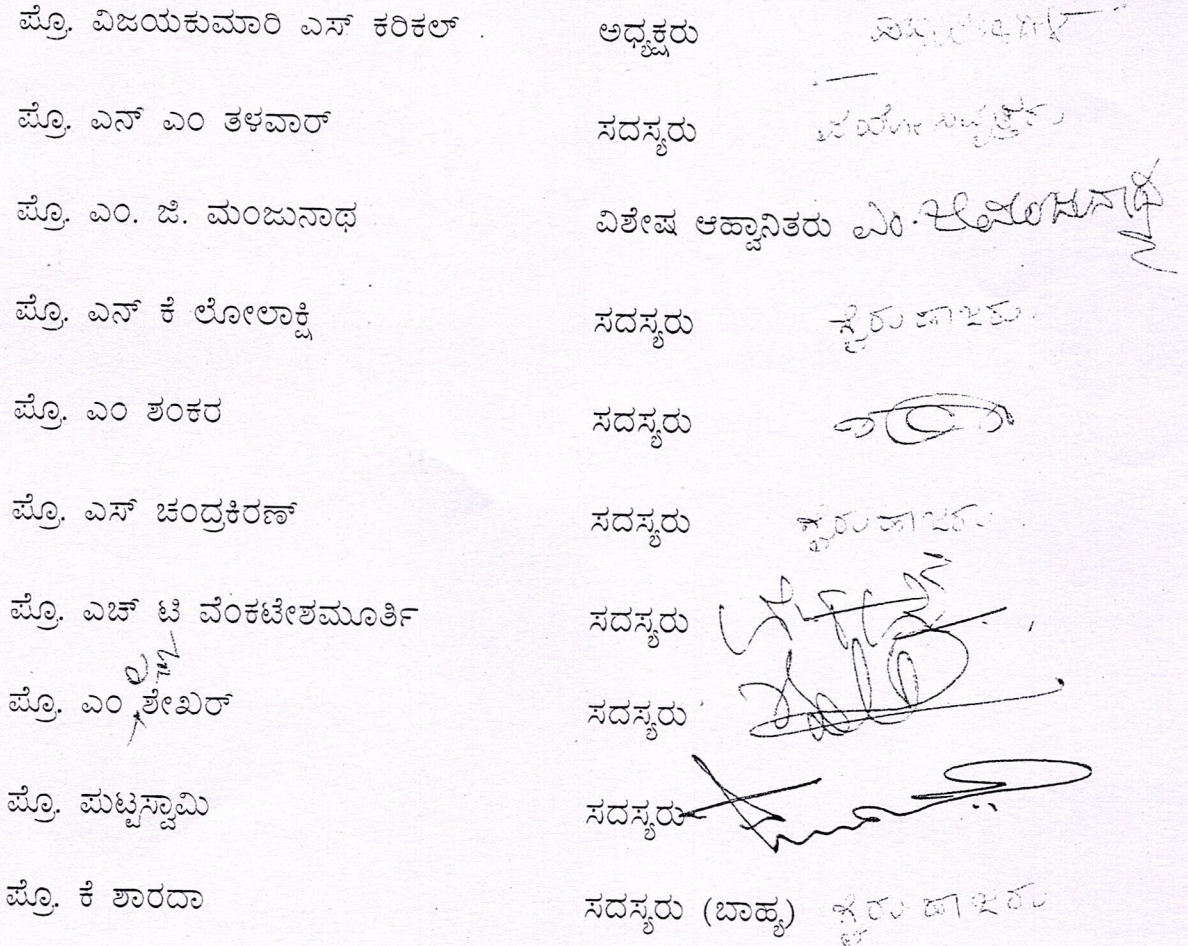 ಪ್ರೊ. ವಿಜಯಕುಮಾರಿ ಎಸ್ ಕರಿಕಲ್ ಅಧ್ಯಕ್ಷರು
ಪ್ರೊ. ಎನ್ ಎಂ ತಳವಾರ್ ಸದಸ್ಯರು
ಪ್ರೊ. ಎಂ. ಜಿ. ಮಂಜುನಾಥ ವಿಶೇಷ ಆಹ್ವಾನಿತರು ಎಂ.ಜಿ.ಮಂಜುನಾಥ
ಪ್ರೊ. ಎನ್ ಕೆ ಲೋಲಾಕ್ಷಿ ಸದಸ್ಯರು ಗೈರು ಹಾಜರು
ಪ್ರೊ. ಎಂ ಶಂಕರ ಸದಸ್ಯರು
ಪ್ರೊ. ಎಸ್ ಚಂದ್ರಕಿರಣ್ ಸದಸ್ಯರು ಗೈರು ಹಾಜರು
ಪ್ರೊ. ಎಚ್ ಟಿ ವೆಂಕಟೇಶಮೂರ್ತಿ ಸದಸ್ಯರು
ಪ್ರೊ. ಎಂ ಎಸ್ ಶೇಖರ್ ಸದಸ್ಯರು
ಪ್ರೊ. ಪುಟ್ಟಸ್ವಾಮಿ ಸದಸ್ಯರು
ಪ್ರೊ. ಕೆ ಶಾರದಾ ಸದಸ್ಯರು (ಬಾಹ್ಯ) ಗೈರು ಹಾಜರು